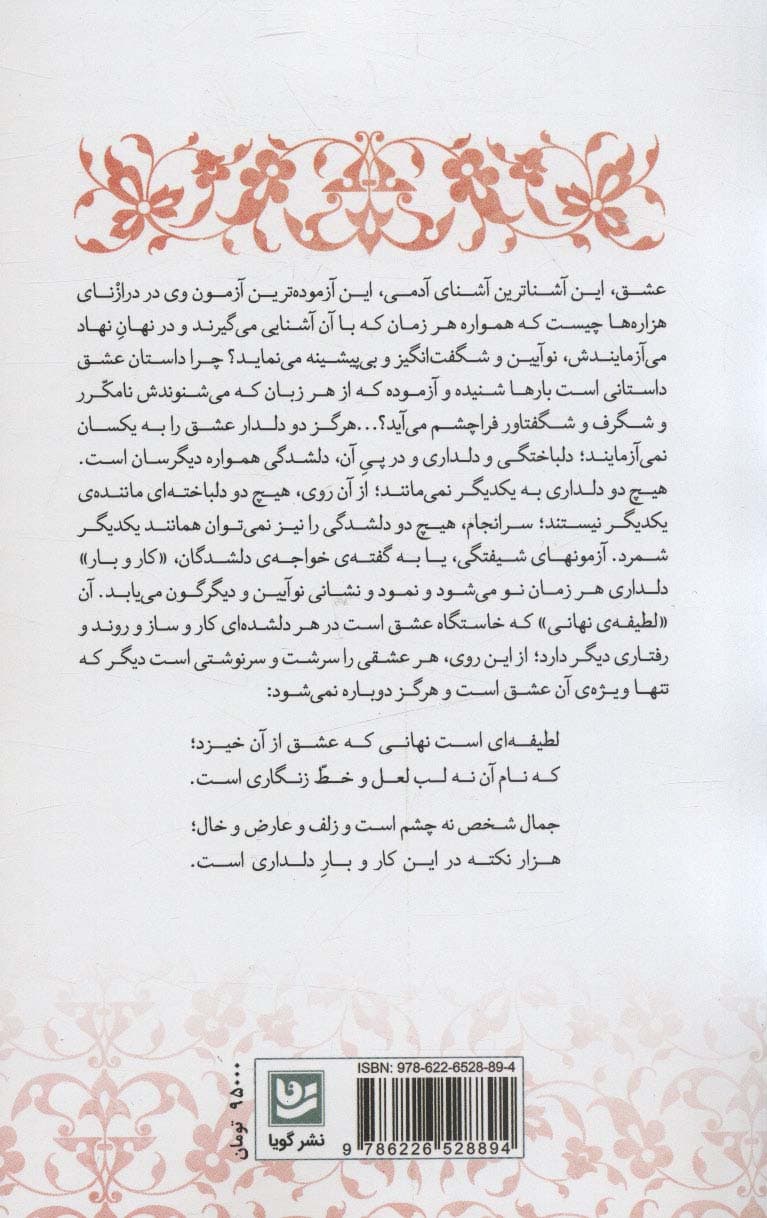 عشق، این آشناترین آشنای آدمی، این آزموده‌ترین آزمون وی در درازْنای
هزاره‌ها چیست که همواره هر زمان که با آن آشنایی می‌گیرند و در نهانِ نهاد
می‌آزمایندش، نوآیین و شگفت‌انگیز و بی‌پیشینه می‌نماید؟ چرا داستان عشق
داستانی است بارها شنیده و آزموده که از هر زبان که می‌شنوندش نامکّرر
و شگرف و شگفتاور فراچشم می‌آید؟...هرگز دو دلدار عشق را به یکسان
نمی‌آزمایند؛ دلباختگی و دلداری و در پیِ آن، دلشدگی همواره دیگرسان است.
هیچ دو دلداری به یکدیگر نمی‌مانند؛ از آن روی، هیچ دو دلباخته‌ای ماننده‌ی
یکدیگر نیستند؛ سرانجام، هیچ دو دلشدگی را نیز نمی‌توان همانند یکدیگر
شمرد. آزمونهای شیفتگی، یا به گفته‌ی خواجه‌ی دلشدگان، «کار و بار»
دلداری هر زمان نو می‌شود و نمود و نشانی نوآیین و دیگرگون می‌یابد. آن
«لطیفه‌ی نهانی» که خاستگاه عشق است در هر دلشده‌ای کار و ساز و روند و
رفتاری دیگر دارد؛ از این روی، هر عشقی را سرشت و سرنوشتی است دیگر که
تنها ویژه‌ی آن عشق است و هرگز دوباره نمی‌شود:
لطیفه‌ای است نهانی که عشق از آن خیزد؛
که نام آن نه لب لعل و خطّ زنگاری است.
جمال شخص نه چشم است و زلف و عارض و خال؛
هزار نکته در این کار و بارِ دلداری است.
ISBN: 978-622-6528-89-4
9 786226 528894
نشر گویا
۹۵۰۰۰ تومان